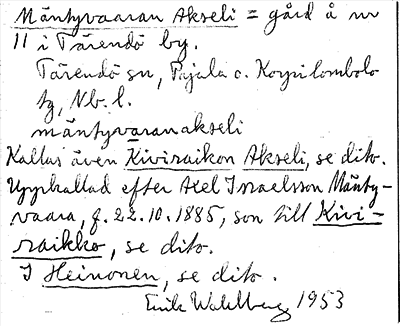 Mäntyvaaran Akseli = gård å nr
11 i Tärendö by.
Tärendö sn, Pajala o. Korpilombolo
tg, Nb. l.
mäntyvaranakseli
Kallas även Kiviraikon Akseli, se dito.
Uppkallad efter Axel Israelsson Mänty-
vaara, f. 22.10.1885, son till Kivi-
raikko, se dito.
I Heinonen, se dito.
Erik Wahlberg 1953